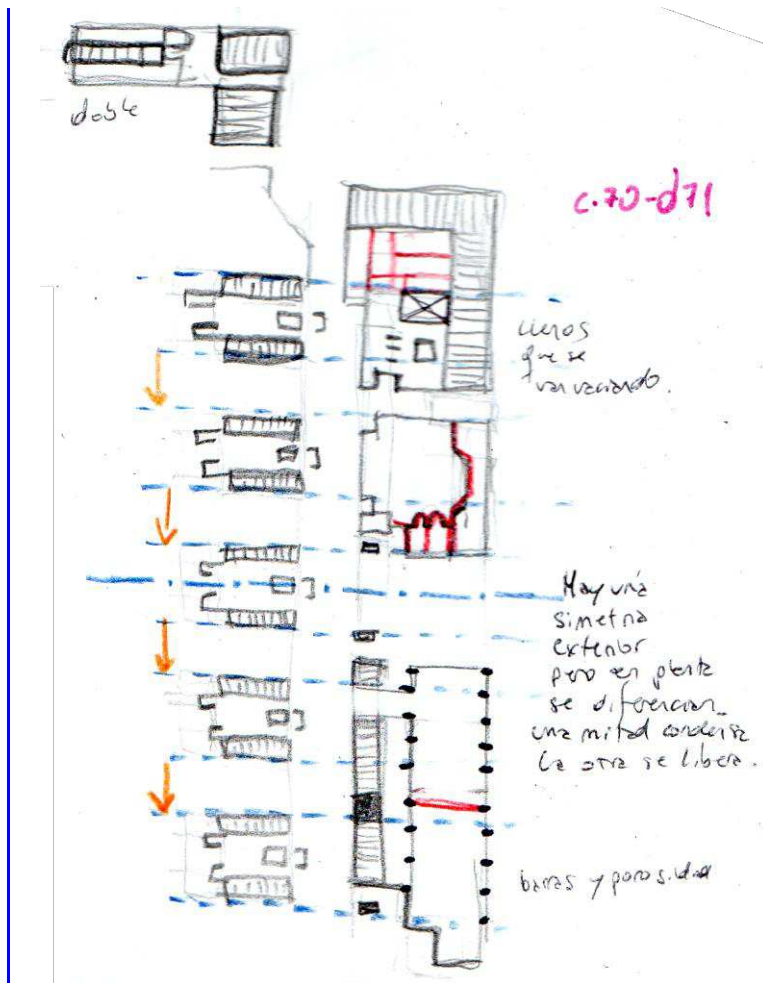 doble
c.70-d71
llenos
que se
van vaciando.
Hay una
simetria
exterior
pero en planta
se diferencian
una mitad condensa
la otra se libera.
barras y porosidad